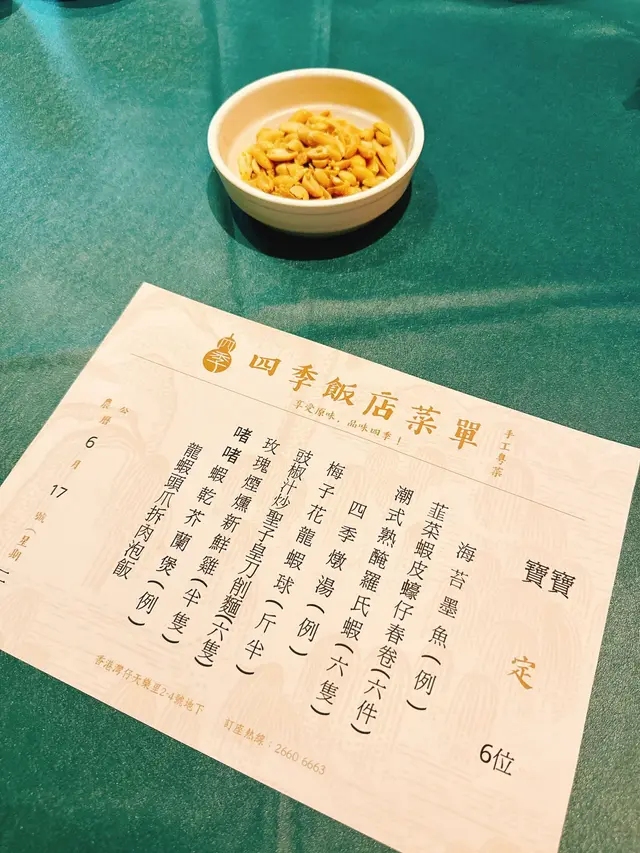 四季
四季飯店菜單
手工粵菜
享受原味，品味四季！
寶寶 定 6位
海苔墨魚(例)
韮菜蝦皮蠔仔春卷(六件)
潮式熟醃羅氏蝦(六隻)
四季燉湯
梅子花龍蝦球(例)
豉椒汁炒聖子皇刀削麵(斤半)
玫瑰煙燻新鮮雞(半隻)
啫啫蝦乾芥蘭煲(例)
龍蝦頭爪拆肉泡飯
公曆 6月17號(星期二
香港灣仔天樂里2-4號地下
訂座熱線：2660 6663